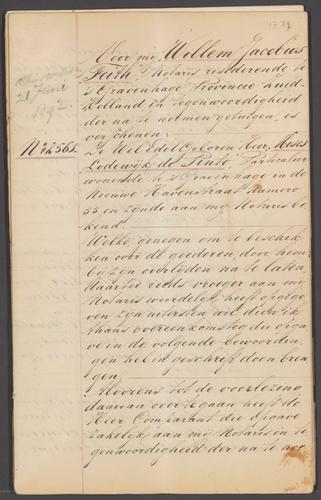 47.71
Voor mij Willem Jacobus
Feith, Notaris resideerende te
's Gravenhage Provincie Zuid-
Holland in tegenwoordigheid
der na te noemen getuigen, is
verschenen:
21 Juni
1892
No 2565
De Wel Edel Geboren Heer Moses
Lodewijk de Pinto, Particulier
wonende te 's Gravenhage in de
Nieuwe Havenstraat numero
55 en zijnde aan mij Notaris be
kend.
Welke, genegen om te beschik
ken over de goederen, door hem
bij zijn overlijden na te laten,
daartoe reeds vroeger aan mij
Notaris woordelijk heeft opgege
ven zijn uitersten wil, die ik
thans overeenkomstig die opga
ve in de volgende bewoordin
gen heb in geschrift doen bren
gen.
Alvorens tot de voorlezing
daarvan over te gaan heeft de
Heer Comparant die opgave
zakelijk aan mij Notaris in te
genwoordigheid der na te noe